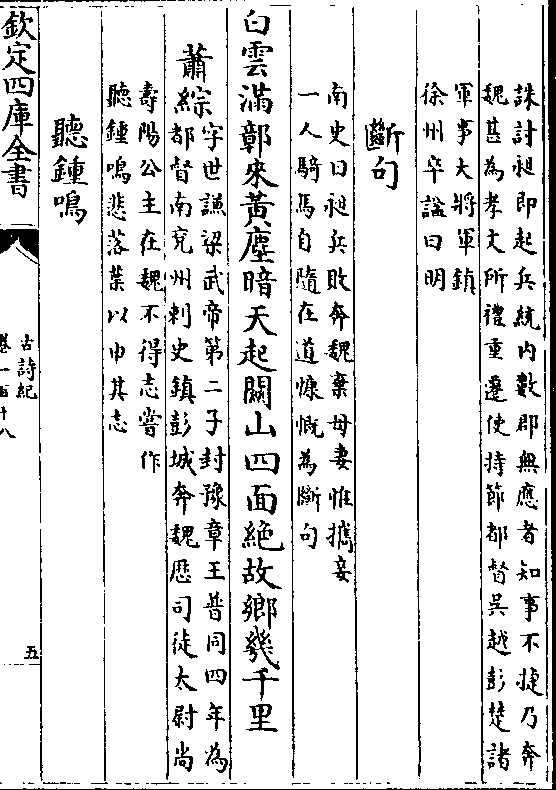 誅討昶即起兵統内數郡無應者知事不捷乃奔
魏甚為孝文所禮重遷使持節都督吳越彭楚諸
軍事大將軍鎮
徐州卒諡曰明
斷句
南史曰昶兵敗奔魏棄母妻惟攜妾
一人騎馬自隨在道慷慨為斷句
白雲滿鄣來黃塵暗天起關山四面絶故鄉幾千里
蕭綜
字世謙梁武帝第二子封豫章王普同四年為
都督南兗州刺史鎮彭城奔魏歴司徒太尉尚
壽陽公主在魏不得志嘗作
聽鍾鳴悲落葉以申其志
聽鍾鳴
欽定四庫全書
古詩紀
卷一百十八
五